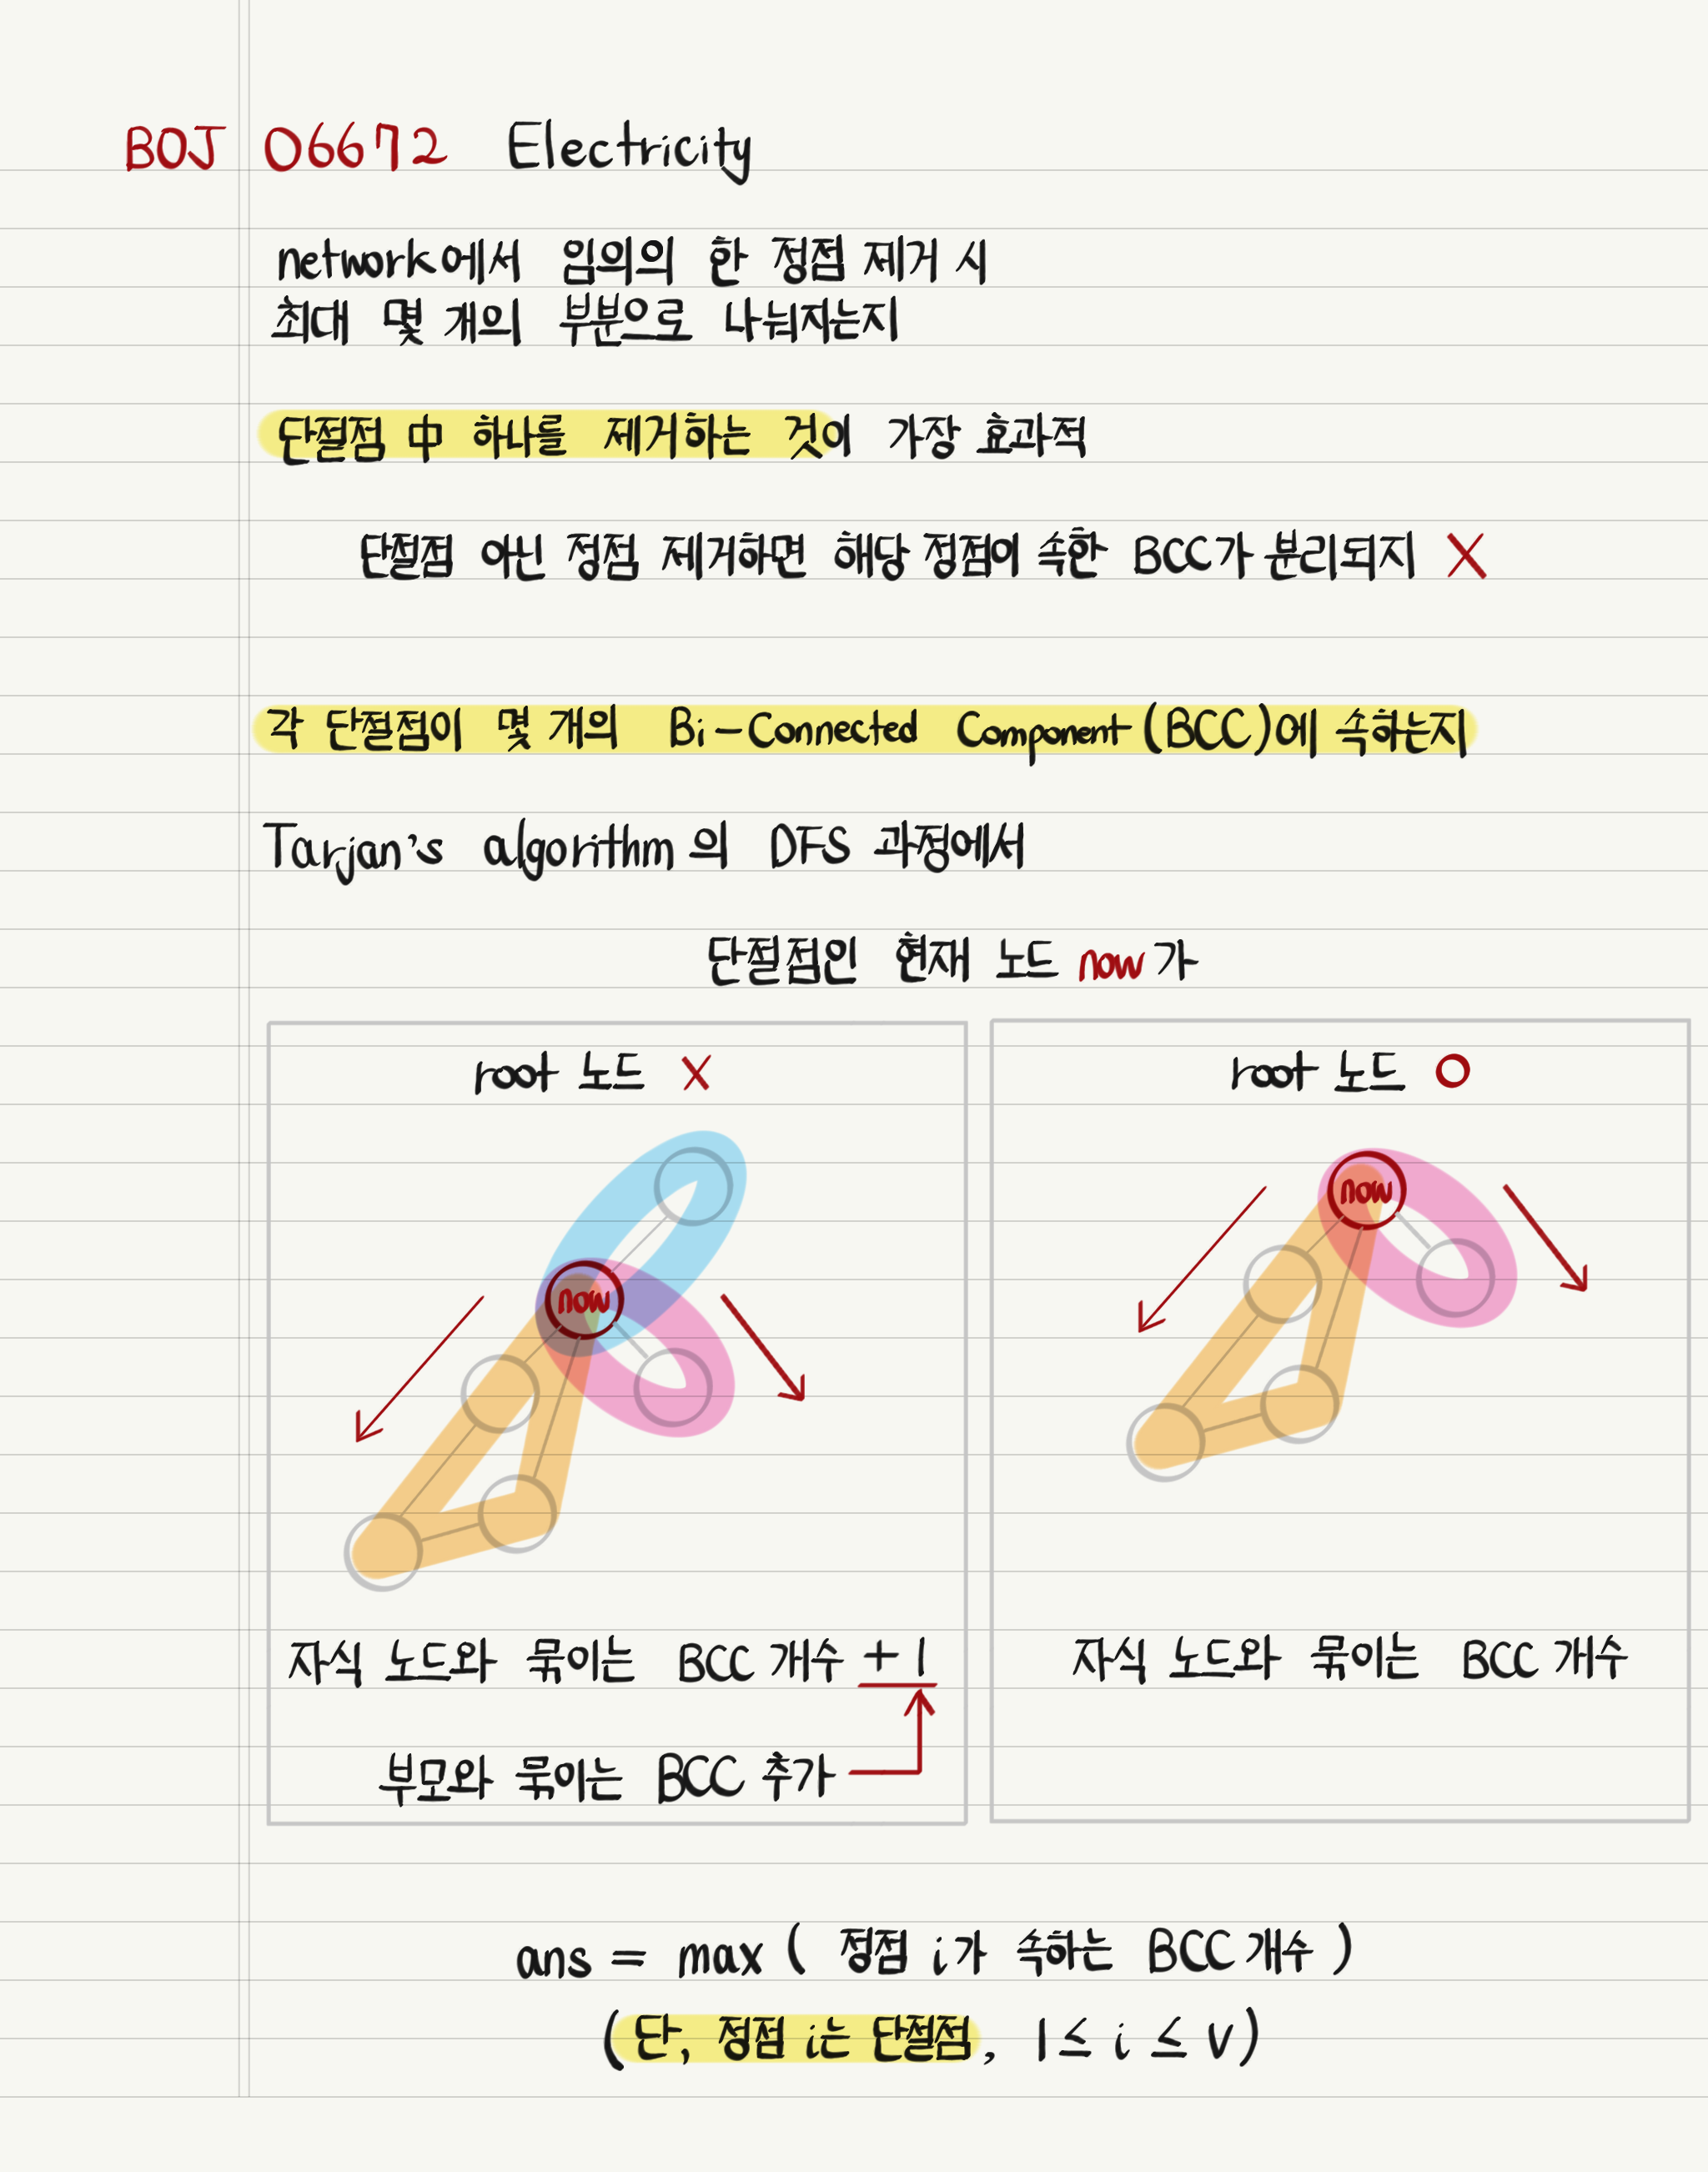 BOJ 06672 Electricity
network에서 임의의 한 정점 제거 시
최대 몇 개의 부분으로 나눠지는지
단절점 中 하나를 제거하는 것이 가장 효과적
단절점 아닌 정점 제거하면 해당 정점이 속한 BCC가 분리되지 X
각 단절점이 몇 개의 Bi-Connected Component(BCC)에 속하는지
Tarjan's algorithm의 DFS 과정에서
단절점인 현재 노드 now가
root 노드 X
now
자식 노드와 묶이는 BCC 개수 +1
부모와 묶이는 BCC 추가
root 노드 O
now
자식 노드와 묶이는 BCC 개수
ans = max ( 정점 i가 속하는 BCC 개수 )
(단, 정점 i는 단절점, 1 ≤ i ≤ V)